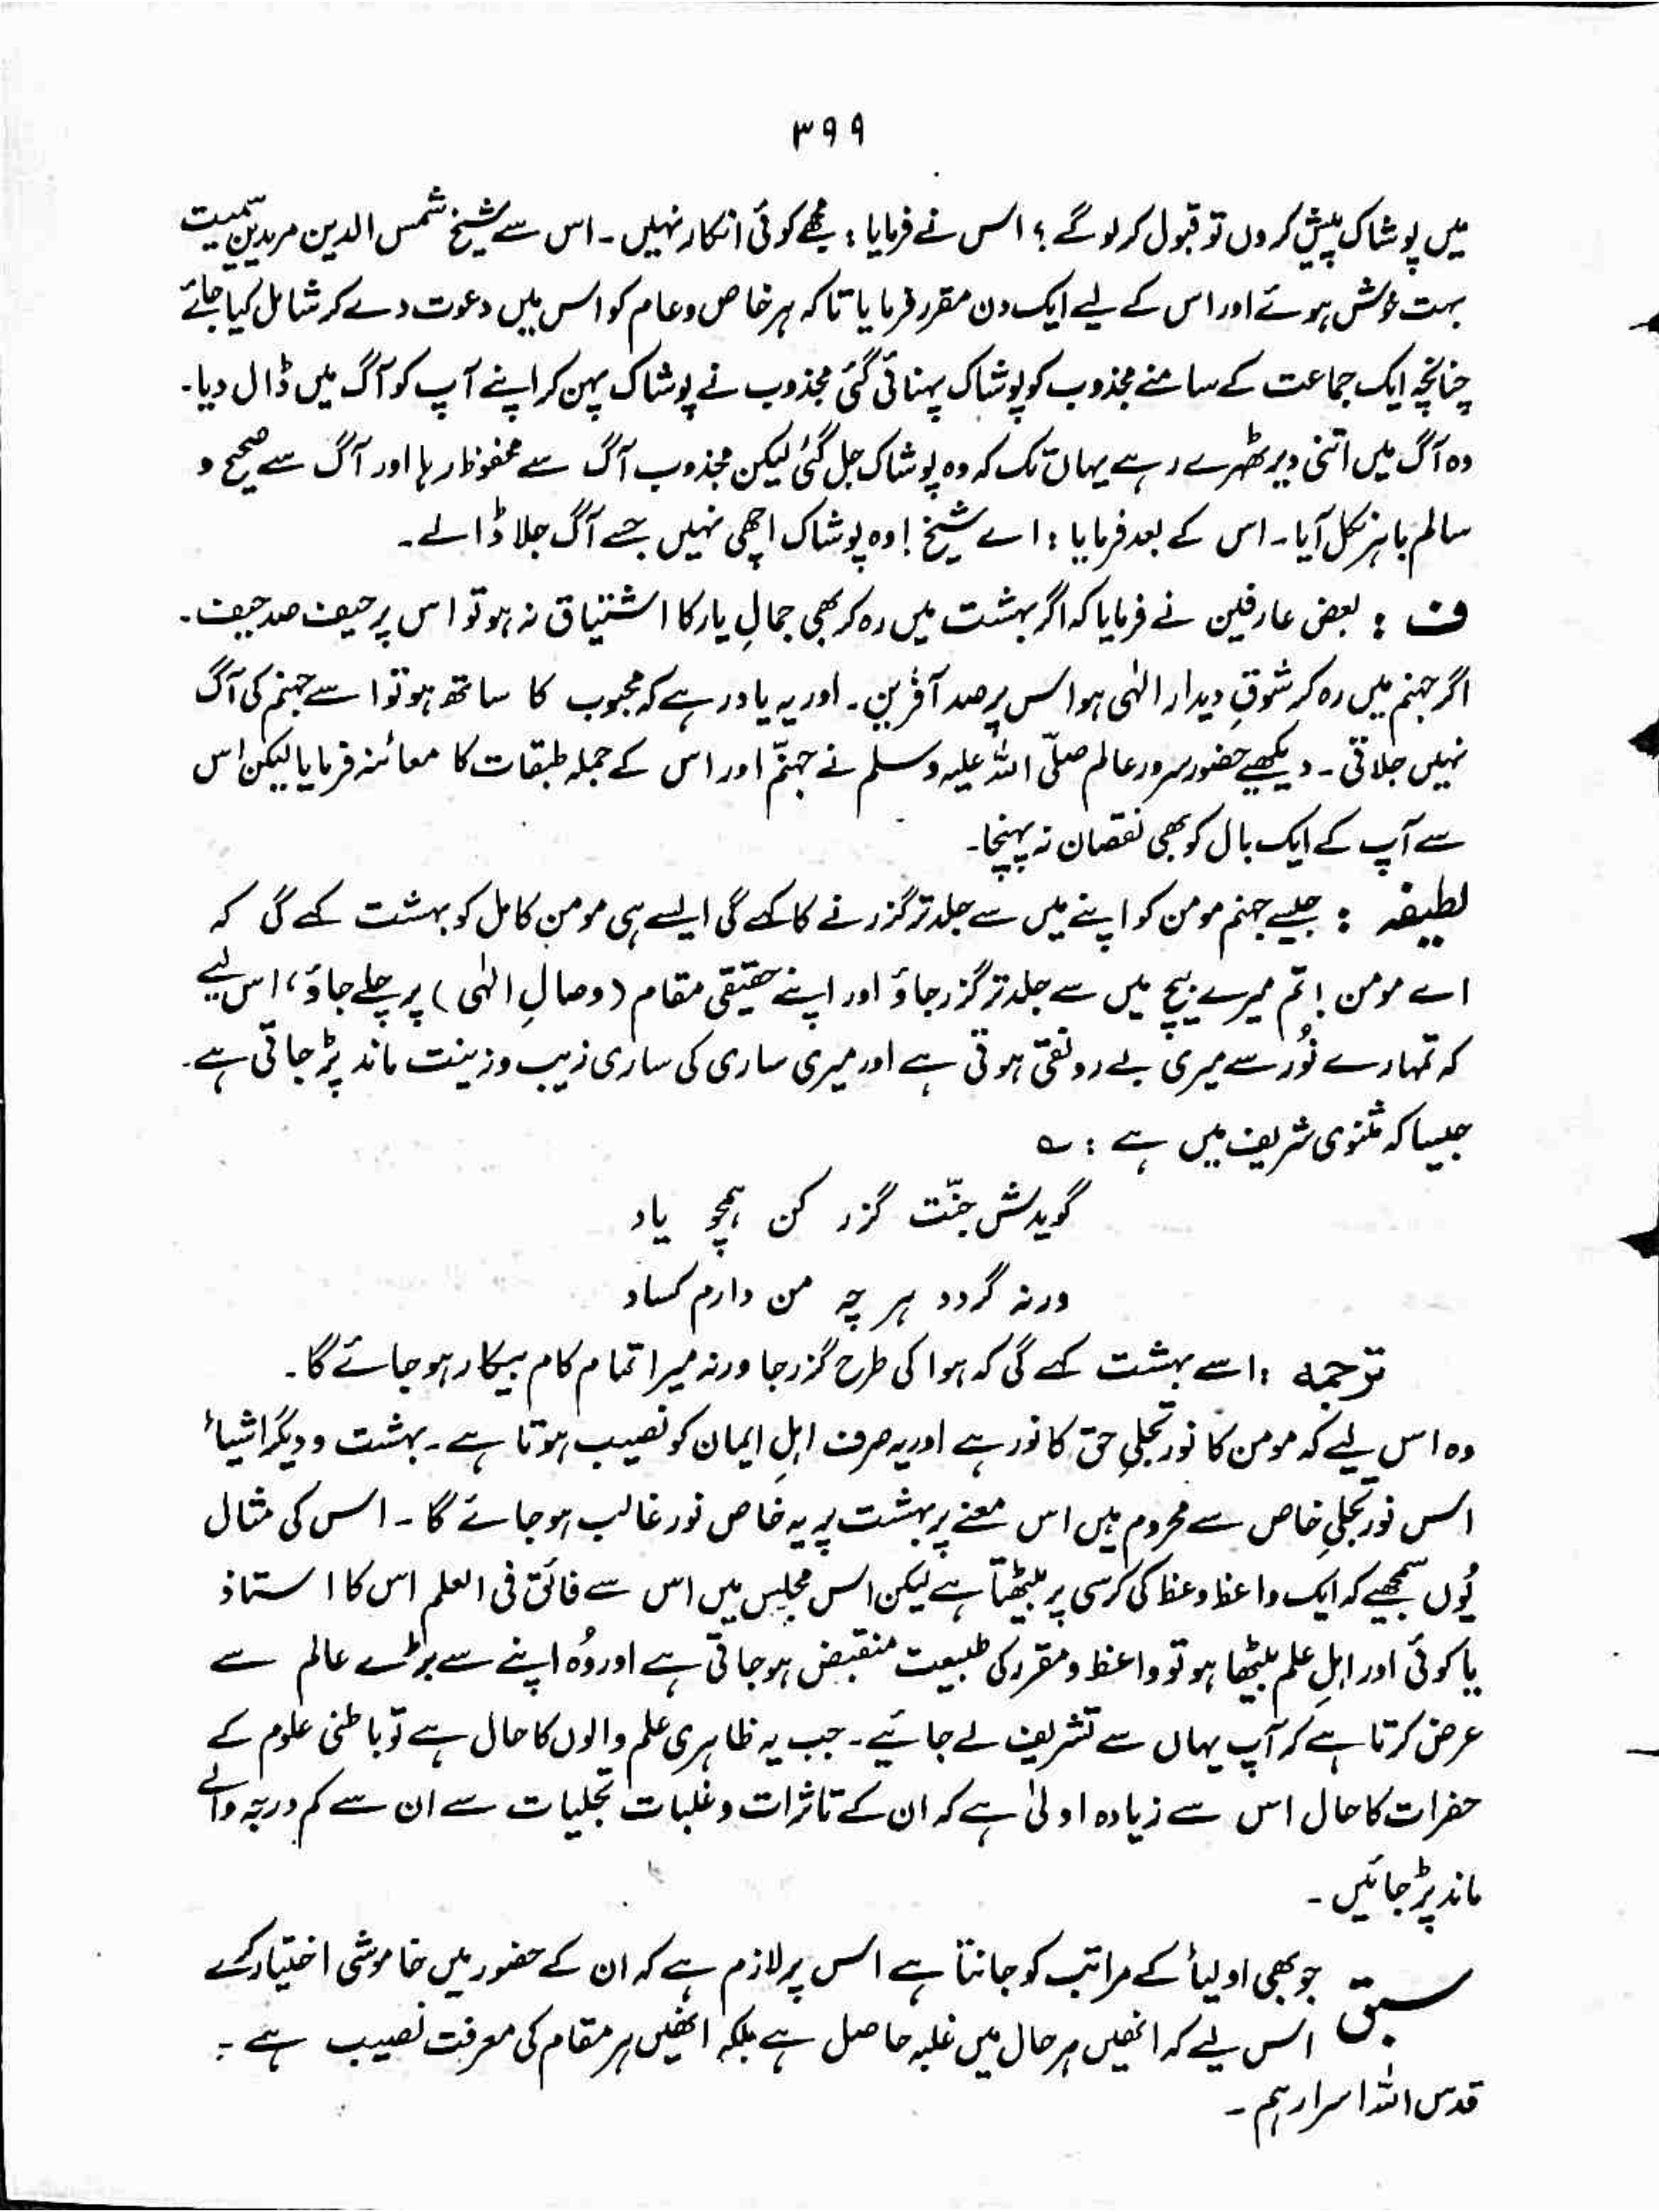 ۳۹۹
میں پوشاک پیش کروں تو قبول کرلو گے ؟ اس نے فرمایا : مجھے کوئی انکار نہیں ۔ اس سے شیخ شمس الدین مریدین سمیت
بہت خوش ہوئے اور اس کے لیے ایک دن مقرر فرمایا تاکہ ہر خاص و عام کو اس میں دعوت دے کر شامل کیا جائے
چنانچہ ایک جماعت کے سامنے مجذوب کو پوشاک پہنائی گئی مجذوب نے پوشاک پہن کر اپنے آپ کو آگ میں ڈال دیا۔
وہ آگ میں اتنی دیر ٹھہرے رہے یہاں تک کہ وہ پوشاک جل گئی لیکن مجذوب آگ سے محفوظ رہا اور آگ سے صحیح و
سالم باہر نکل آیا۔ اس کے بعد فرمایا : اے شیخ ! وہ پوشاک اچھی نہیں جسے آگ جلا ڈالے ۔
ف : بعض عارفین نے فرمایا کہ اگر بہشت میں رہ کر بھی جمالِ یار کا اشتیاق نہ ہو تو اس پر حیف صد حیف ۔
اگر جہنم میں رہ کر شوقِ دیدار الٰہی ہو اس پر صد آفرین ۔ اور یہ یاد رہے کہ محبوب کا ساتھ ہو تو اسے جہنم کی آگ
نہیں جلاتی ۔ دیکھیے حضور سرور عالم صلّی اللہ علیہ وسلم نے جہنّم اور اس کے جملہ طبقات کا معائنہ فرمایا لیکن اس
سے آپ کے ایک بال کو بھی نقصان نہ پہنچا۔
لطیفہ : جیسے جہنم مومن کو اپنے میں سے جلد تر گزرنے کا کہے گی ایسے ہی مومنِ کامل کو بہشت کہے گی کہ
اے مومن ! تم میرے بیچ میں سے جلد تر گزر جاؤ اور اپنے حقیقی مقام (وصالِ الٰہی) پر چلے جاؤ، اس لیے
کہ تمہارے نُور سے میری بے رونقی ہوتی ہے اور میری ساری کی ساری زیب و زینت ماند پڑ جاتی ہے ۔
جیسا کہ مثنوی شریف میں ہے : ؎
گویدش جنّت گزر کن ہمچو باد
ورنہ گردد ہر چہ من دارم کساد
ترجمہ : اسے بہشت کہے گی کہ ہوا کی طرح گزر جا ورنہ میرا تمام کام بیکار ہو جائے گا ۔
وہ اس لیے کہ مومن کا نور تجلیِ حق کا نور ہے اور یہ صرف اہلِ ایمان کو نصیب ہوتا ہے ۔ بہشت و دیگر اشیاء
اس نور تجلیِ خاص سے محروم ہیں اس معنے پر بہشت پر یہ خاص نور غالب ہو جائے گا ۔ اس کی مثال
یُوں سمجھیے کہ ایک واعظ وعظ کی کرسی پر بیٹھتا ہے لیکن اس مجلس میں اس سے فائق فی العلم اس کا استاذ
یا کوئی اور اہلِ علم بیٹھا ہو تو واعظ و مقرر کی طبیعت منقبض ہو جاتی ہے اور وُہ اپنے سے بڑے عالم سے
عرض کرتا ہے کہ آپ یہاں سے تشریف لے جائیے ۔ جب یہ ظاہری علم والوں کا حال ہے تو باطنی علوم کے
حضرات کا حال اس سے زیادہ اولیٰ ہے کہ ان کے تاثرات و غلبات تجلیات سے ان سے کم درجہ والے
ماند پڑ جائیں ۔
سبق جو بھی اولیاء کے مراتب کو جانتا ہے اس پر لازم ہے کہ ان کے حضور میں خاموشی اختیار کرے
اس لیے کہ انھیں ہر حال میں غلبہ حاصل ہے بلکہ انھیں ہر مقام کی معرفت نصیب ہے ۔
قدس اللہ اسرارہم ۔